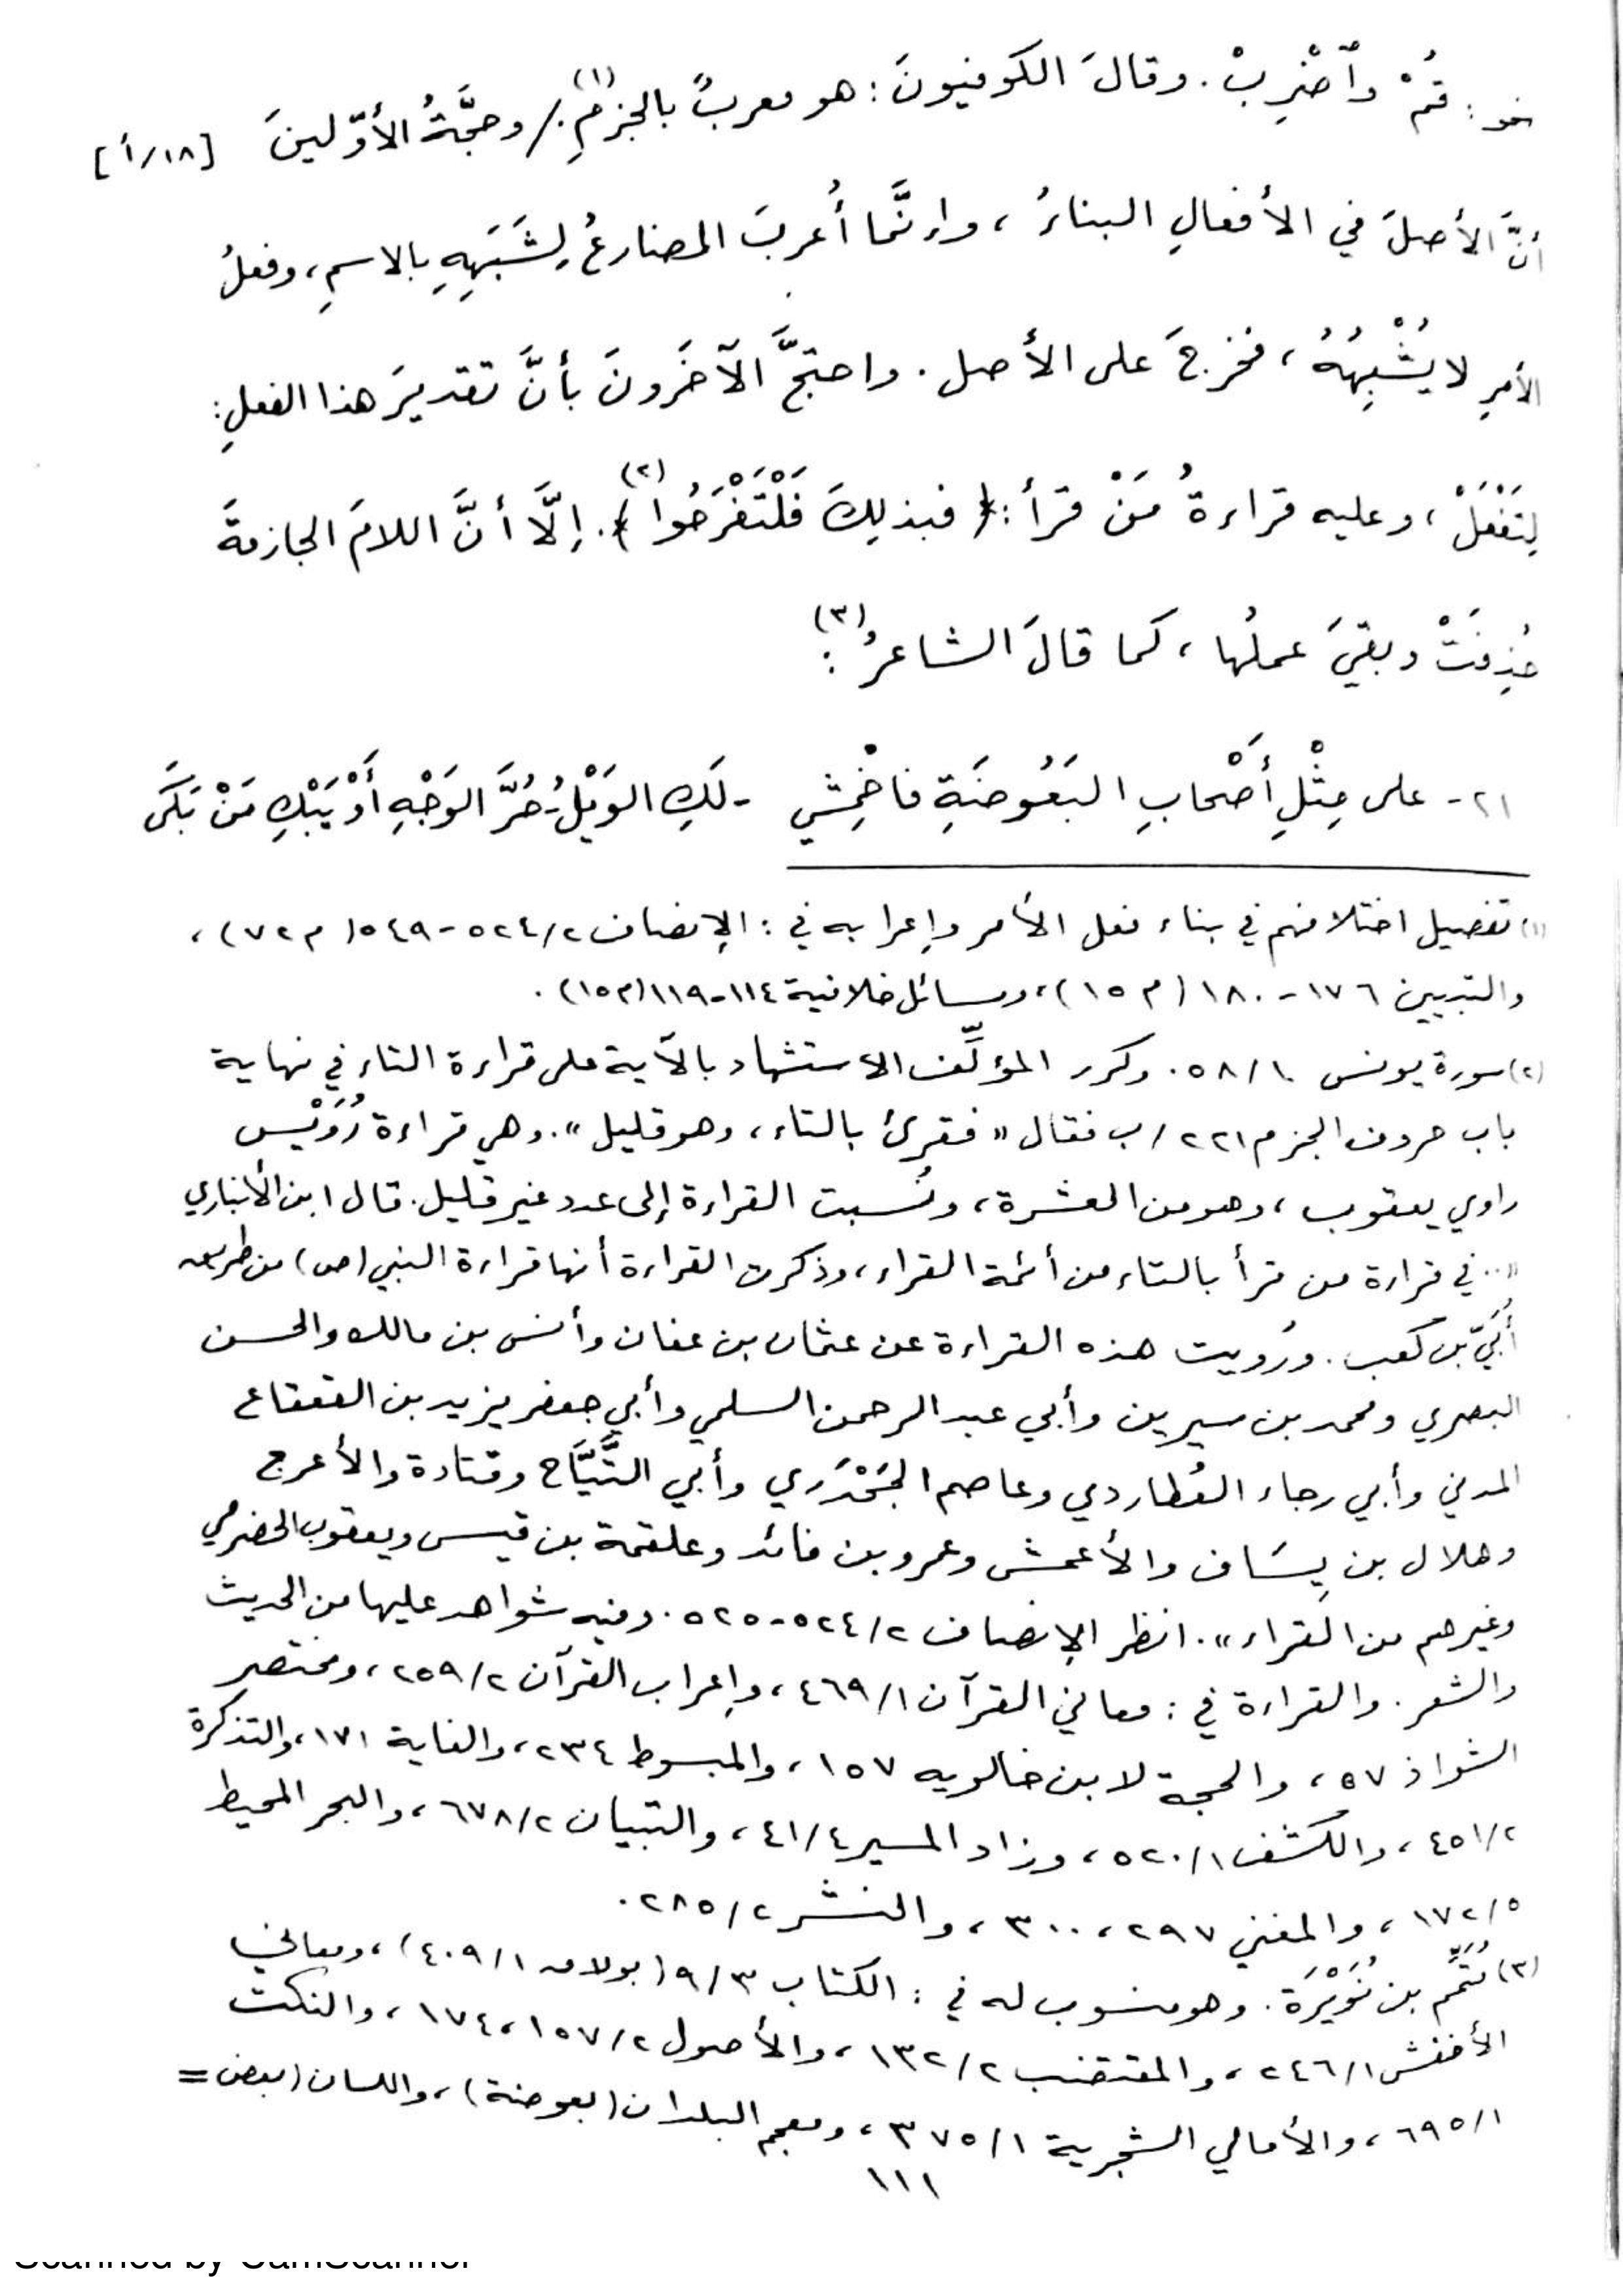 نحو: قُمْ وٱضْرِبْ. وقالَ الكوفيونَ: هو معربٌ بالجزمِ(١)./ وحجَّةُ الأوّلينَ [١٨/أ]
أنَّ الأصلَ في الأفعالِ البناءُ، وإنَّما أُعربَ المضارعُ لِشَبَهِهِ بالاسمِ، وفعلُ
الأمرِ لا يُشْبِهُهُ، فخرجَ على الأصل. واحتجَّ الآخَرونَ بأنَّ تقديرَ هذا الفعلِ:
لِتَفْعَلْ، وعليه قراءةُ مَنْ قرأ: ﴿فبذلِكَ فَلْتَفْرَحُوا(٢)﴾. إلَّا أنَّ اللامَ الجازمةَ
حُذِفَتْ وبقيَ عملُها، كما قالَ الشاعرُ(٣):
٢١- على مِثْلِ أَصْحابِ البَعُوضَةِ فاخْمِشي -لَكِ الوَيْلُ- حُرَّ الوَجْهِ أَوْ يَبْكِ مَنْ بَكَى
(١) تفصيل اختلافهم في بناء فعل الأمر وإعرابه في: الإنصاف ٥٢٤/٢-٥٤٩ (م ٧٢)،
والتبيين ١٧٦-١٨٠ (م ١٥)، ومسائل خلافية ١١٤-١١٩ (م١٥).
(٢) سورة يونس ٥٨/١٠. وكرر المؤلِّف الاستشهاد بالآية على قراءة التاء في نهاية
باب حروف الجزم ٢٢١/ب فقال «فقرئ بالتاء، وهو قليل». وهي قراءة رُوَيْس
راوي يعقوب، وهو من العشرة، ونُسبت القراءة إلى عدد غير قليل. قال ابن الأنباري
«..في قراءة من قرأ بالتاء من أئمة القراء، وذكرت القراءة أنها قراءة النبي (ص) من طريق
أُبَيّ بن كعب. ورُويت هذه القراءة عن عثمان بن عفان وأنس بن مالك والحسن
البصري ومحمد بن سيرين وأبي عبد الرحمن السلمي وأبي جعفر يزيد بن القعقاع
المدني وأبي رجاء العُطاردي وعاصم الجَحْدَري وأبي التَّيَّاح وقتادة والأعرج
وهلال بن يِسَاف والأعمش وعمرو بن فائد وعلقمة بن قيس ويعقوب الحضرمي
وغيرهم من القراء». انظر الإنصاف ٥٢٤/٢-٥٢٥. وفيه شواهد عليها من الحديث
والشعر. والقراءة في: معاني القرآن ٤٦٩/١، وإعراب القرآن ٢٥٩/٢، ومختصر
الشواذ ٥٧، والحجة لابن خالويه ١٥٧، والمبسوط ٢٣٤، والغاية ١٧١، والتذكرة
٤٥١/٢، والكشف ٥٢٠/١، وزاد المسير ٤١/٤، والتبيان ٦٧٨/٢، والبحر المحيط
١٧٢/٥، والمغني ٢٩٧، ٣٠٠، والنشر ٢٨٥/٢.
(٣) مُتَمِّم بن نُوَيْرَة. وهو منسوب له في: الكتاب ٩/٣ (بولاق ٤٠٩/١)، ومعاني
الأخفش ٢٤٦/١، والمقتضب ١٣٢/٢، والأصول ١٥٧/٢، ١٧٤، والنكت
٦٩٥/١، والأمالي الشجرية ٣٧٥/١، ومعجم البلدان (بعوضة)، واللسان (بعض =
١١١
Scanned by CamScanner